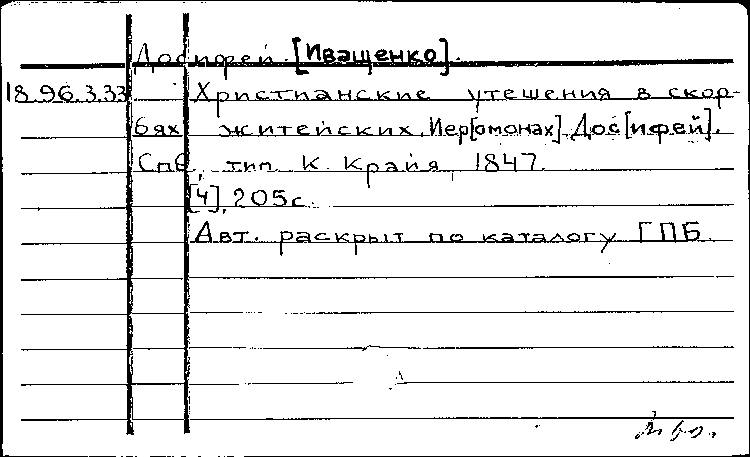 Досифей [Иващенко].
18.96.3.33 Христианские утешения в скор-
бях житейских. Иер[омонах] Дос[ифей].
Спб, тип. К. Крайя, 1847.
[4], 205с.
Авт. раскрыт по каталогу ГПБ.